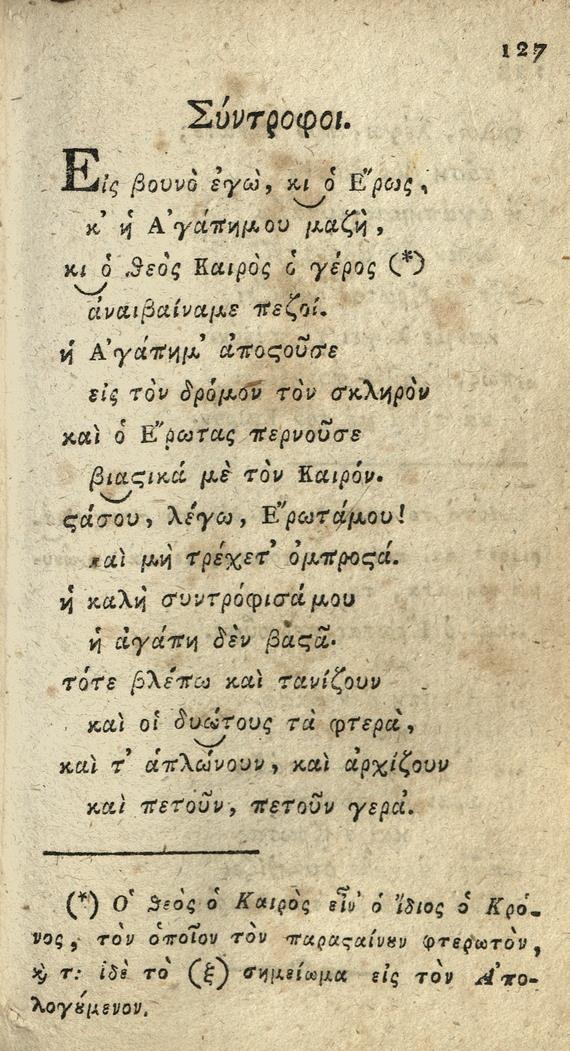 127
Σύντροφοι.
Εἰς βουνὸ ἐγὼ, κι ὁ Ἔρως,
κ' ἡ Ἀγάπημου μαζὴ,
κι ὁ ϑεὸς Καιρὸς ὁ γέρος (*)
ἀναιβαίναμε πεζοί.
ἡ Ἀγάπημ' ἀποϛοῦσε
εἰς τὸν δρόμον τὸν σκληρὸν
καὶ ὁ Ἔρωτας περνοῦσε
βιαϛικά μὲ τὸν Καιρόν.
ϛάσου, λέγω, Ἔρωτάμου!
καὶ μὴ τρέχετ' ὀμπροϛά.
ἡ καλὴ συντρόφισάμου
ἡ ἀγάπη δὲν βαϛᾶ.
τότε βλέπω καὶ τανίζουν
καὶ οἱ δυώτους τὰ φτερὰ,
καὶ τ' ἁπλώνουν, καὶ ἀρχίζουν
καὶ πετοῦν, πετοῦν γερά.
(*) Ὁ ϑεὸς ὁ Καιρὸς εἶν' ὁ ἴδιος ὁ Κρό-
νος, τὸν ὁποῖον τὸν παραϛαίνȣν φτερωτὸν,
ϗ τ: ἰδὲ τὸ (ξ) σημείωμα εἰς τὸν Ἀπο-
λογȣμενον.